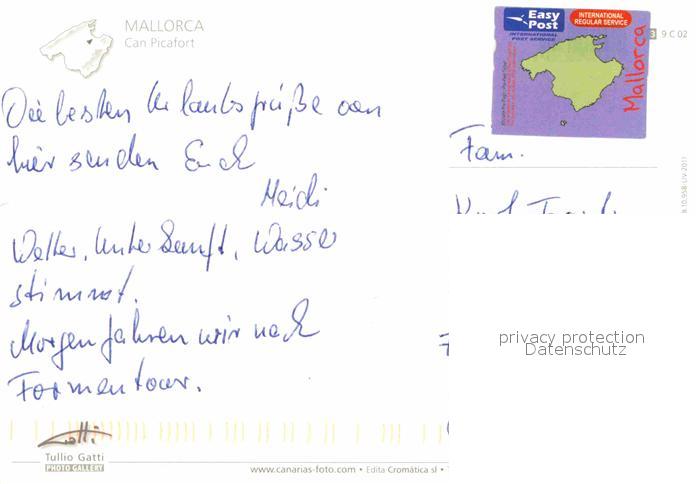 MALLORCA
Can Picafort
Easy Post
INTERNATIONAL REGULAR SERVICE
INTERNATIONAL POST SERVICE
Mallorca
9 C 02
Die besten Urlaubsgrüße von
hier senden Euch
Heidi
Wetter, Unterkunft, Wasser
stimmt.
Morgen fahren wir nach
Formentour.
Fam.
privacy protection
Datenschutz
Gatti
Tullio Gatti
PHOTO GALLERY
www.canarias-foto.com • Edita Cromática sl •